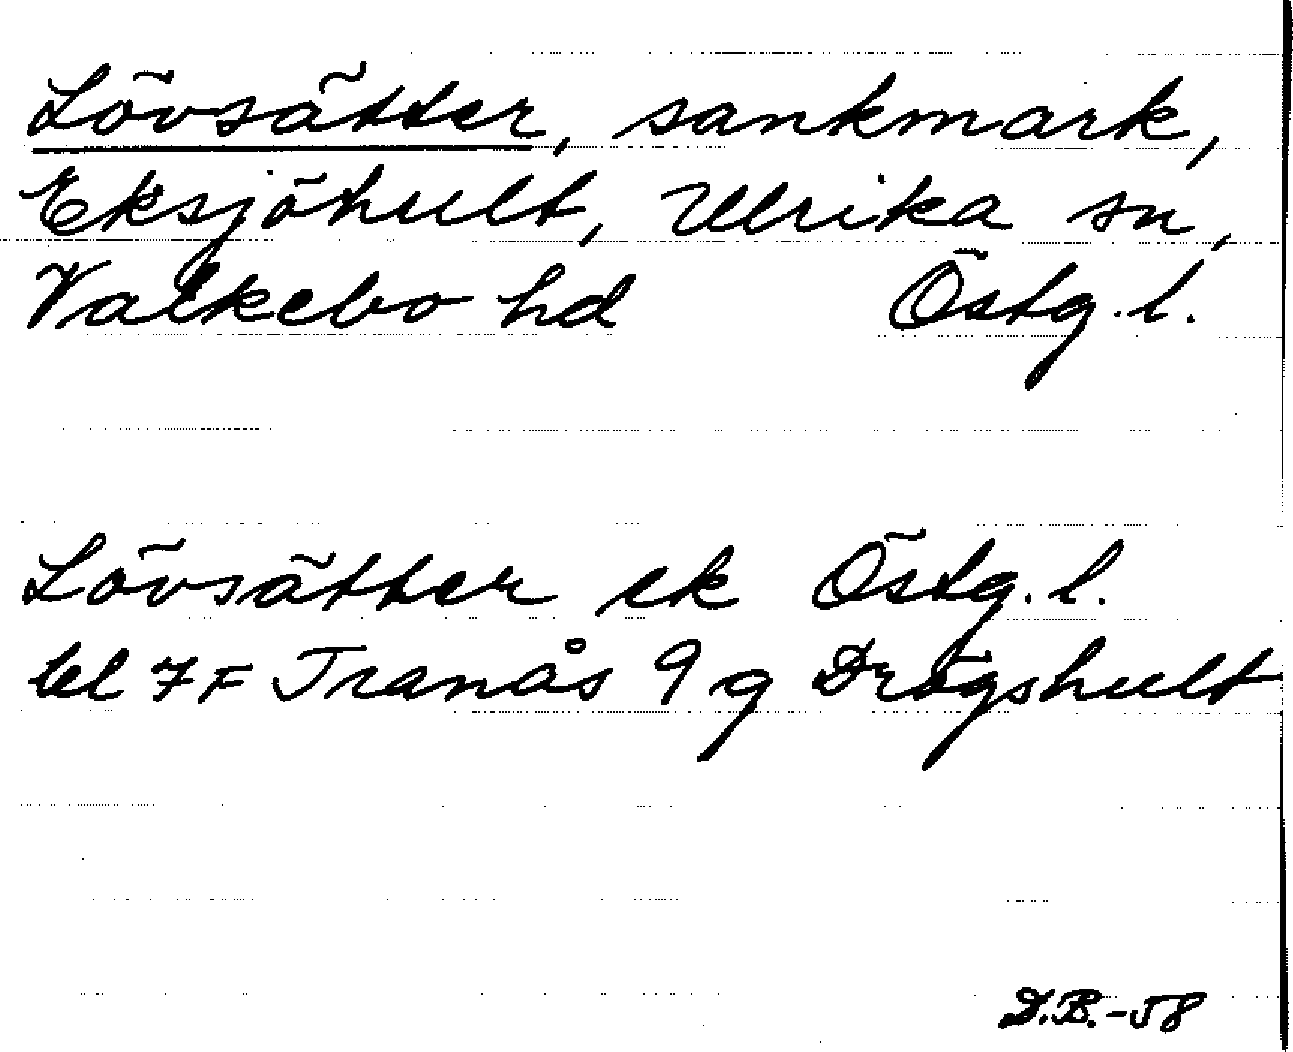 Lövsätter, sankmark,
Eksjöhult, Ulrika sn,
Valkebo hd Östg. l.
Lövsätter ek Östg. l.
bl 7F Tranås 9 g Drögshult
D.B.-58